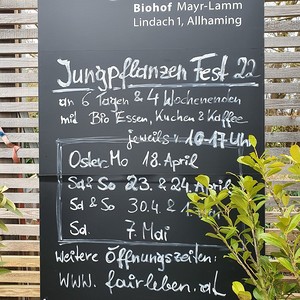 Biohof Mayr-Lamm
Lindach 1, Allhaming
Jungpflanzen Fest 22
an 6 Tagen & 4 Wochenenden
mit Bio Essen, Kuchen & Kaffee
jeweils: 10-17 Uhr
Oster Mo 18. April
Sa & So 23. & 24. April
Sa & So 30.4. & 1.
Sa. 7. Mai
Weitere Öffnungszeiten:
www.fairleben.at